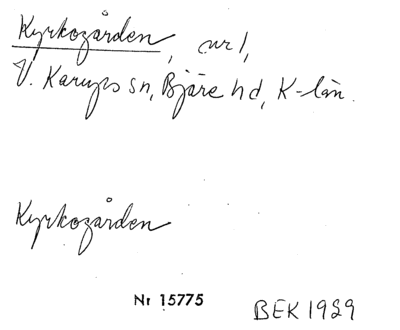 Kyrkogården, nr 1,
V. Karups sn, Bjäre hd, K-län.
Kyrkogården
Nr 15775
BEK 1929